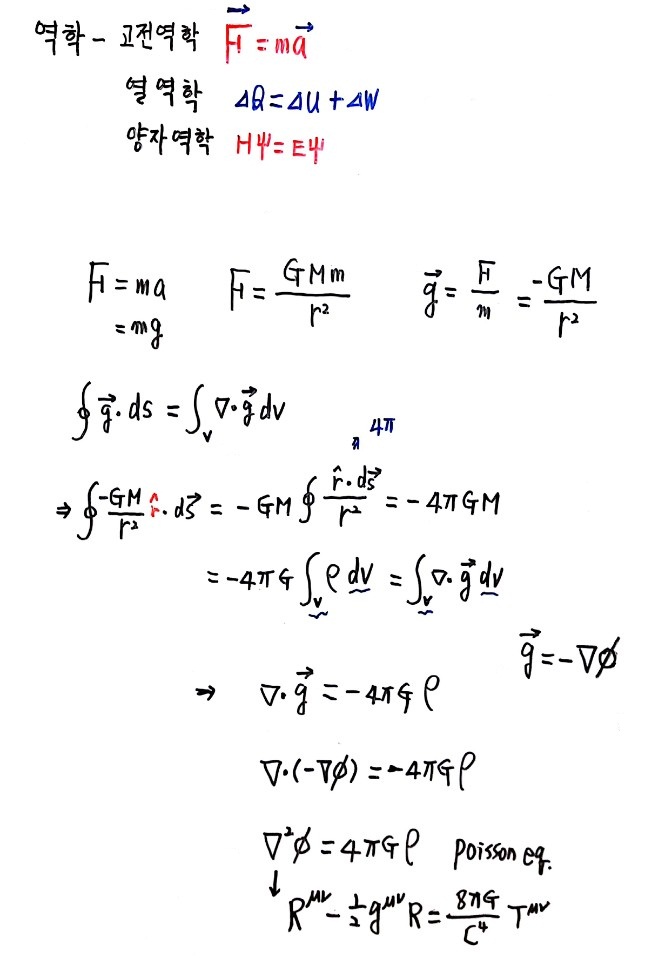 역학 - 고전역학 F⃗ = ma⃗
열역학 ΔQ = ΔU + ΔW
양자역학 HΨ = EΨ
F = ma F = GMm/r² g⃗ = F/m = -GM/r²
= mg
∮ g⃗ · ds = ∫_V ∇·g⃗ dv
" 4π
⇒ ∮ -GM/r² r̂ · ds⃗ = - GM ∮ r̂·ds⃗/r² = - 4πGM
= -4πG ∫_V ρ dv = ∫_V ∇·g⃗ dv
g⃗ = -∇φ
⇒ ∇·g⃗ = -4πGρ
∇·(-∇φ) = -4πGρ
∇²φ = 4πGρ Poisson eq.
↓
R^μν - 1/2 g^μν R = 8πG/C⁴ T^μν